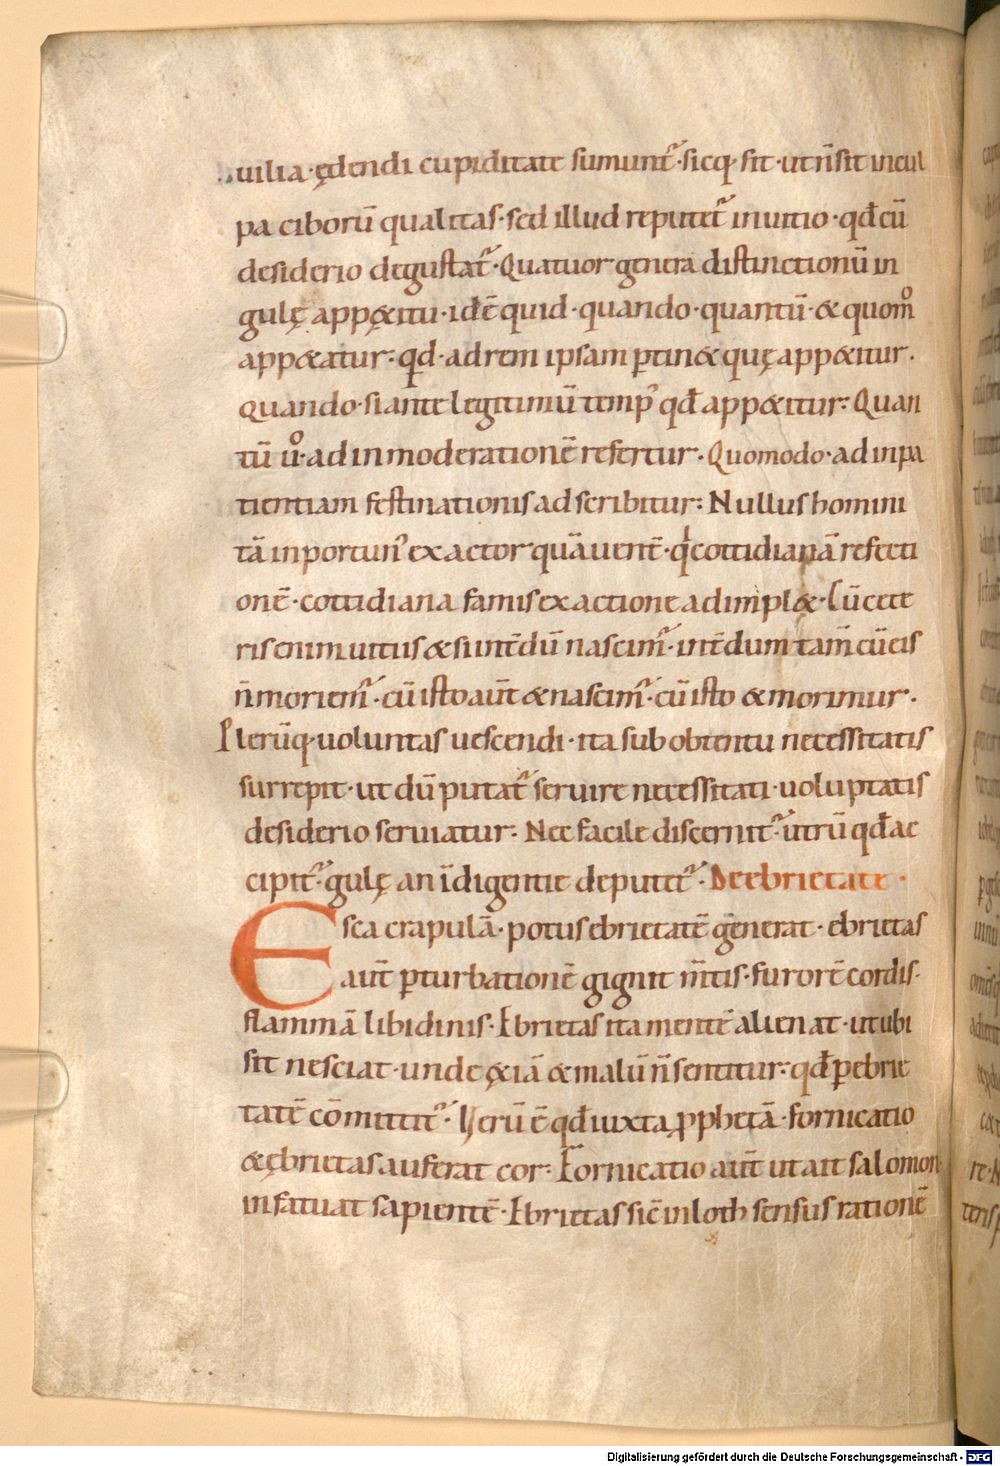 uilia · ędendi cupiditate sumunt᷑ · sicq; sit · ut n̄ sit incul
pa ciborū qualitas · sed illud reputet᷑ in uitio · qđ cū
desiderio degustat᷑ · Quatuor genera distinctionū in
gulę appętitu · idē quid · quando · quantū · & quom̊
app&atur · qd · ad rem ipsam ꝑtin& quę app&itur .
quando · si ante legitimū temp᾽ qđ app&itur · Quan
tū ů · ad inmoderationē refertur . Quomodo · ad inpa
tientiam festinationis adscribitur : Nullus homini
tā inportun᾽ exactor quā uentē · qͥ cottidianā refecti
onē · cottidiana famis exactione adimpl& · Cū cete
ris enim uitiis & si int̄dū nascim᷑ · int̄dum tam̄ cū eis
n̄ moriem᷑ · cū isto aūt & nascim᷑ · cū isto & morimur .
Plerūq; uoluntas uescendi · ita sub obtentu necessitatis
surrepit · ut dū putat᷑ seruire necessitati · uoluptatis
desiderio seruiatur · Nec facile discernit᷑ · utrū qđ ac
cipit᷑ · gulę an īdigentie deputet᷑ · De ebrietate ·
Esca crapulā · potus ebrietatē generat · ebrietas
aūt ꝑturbationē gignit m̄tis · furorē cordis ·
flammā libidinis · Ebrietas ita mentē alienat · ut ubi
sit nesciat · unde &iā & malū n̄ sentitur · qđ ꝑ ebrie
tatē cōmittit᷑ · Verū ē qđ iuxta ꝓphetā · fornicatio
& ębrietas auferat cor : Fornicatio aūt ut ait salomon
infatuat sapientē · Ebrietas sic̄ in loth sensus rationē
Digitalisierung gefördert durch die Deutsche Forschungsgemeinschaft - DFG